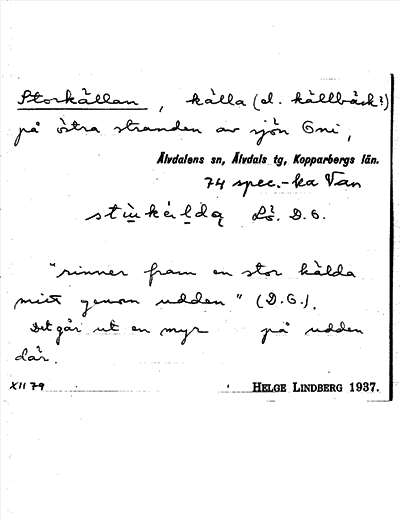 Storkällan, källa (el. källbäck?)
på östra stranden av sjön Oni,
Älvdalens sn, Älvdals tg, Kopparbergs län.
74 spec.-ka Van
D. G.
"rinner fram en stor källda
mitt genom udden" (D.G.).
Det går ut en myr på udden
där.
XII 79
HELGE LINDBERG 1937.